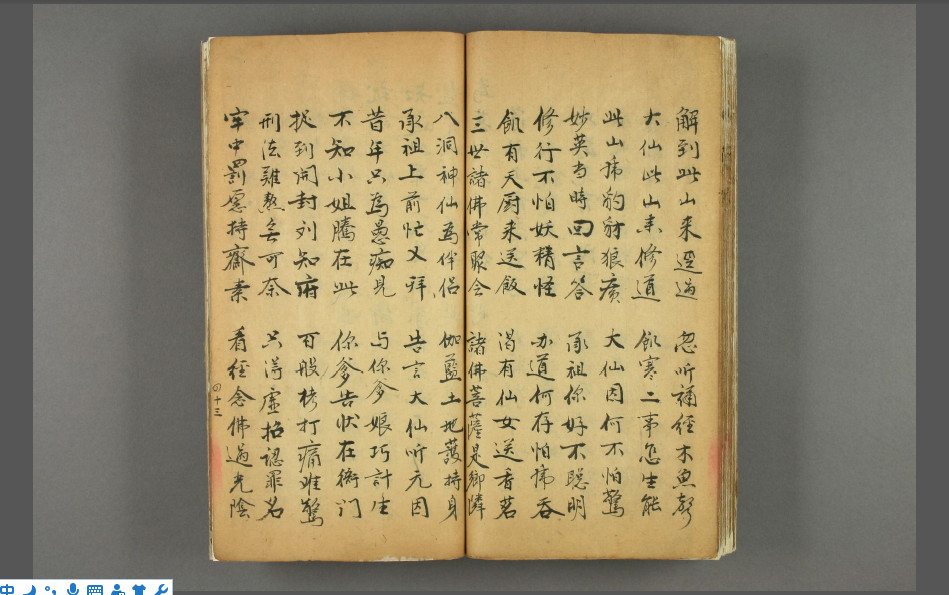 解到此山来逕过 忽听诵经木魚声
大仙此山来修道 飢寒二事怎生能
此山豺豹豺狼廣 大仙因何不怕驚
妙英当時回言答 承祖你好不聪明
修行不怕妖精怪 办道何存怕虎吞
飢有天厨来送飯 渴有仙女送香茗
三世諸佛常聚会 諸佛菩薩是鄉隣
八洞神仙為伴侣 伽藍土地護持身
承祖上前忙又拜 告言大仙听元因
昔年只為愚痴見 与你爹娘巧計生
不知小姐騰在此 你爹告状在衙门
捉到開封刘知府 百般拷打痛难驚
刑法難熬無可奈 只得虚招認罪名
牢中罰愿持齋素 看經念佛過光陰
四十三
中